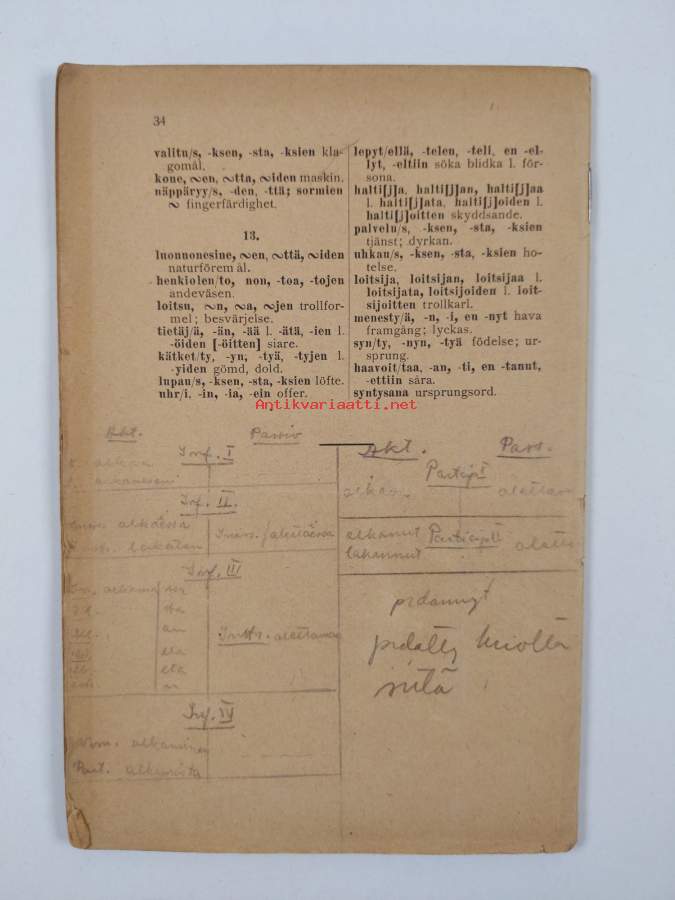 34
valitu/s, -ksen, -sta, -ksien kla-
gomål.
kone, ∾en, ∾tta, ∾iden maskin.
näppäryy/s, -den, -ttä; sormien
∾ fingerfärdighet.
13.
luonnonesine, ∾en, ∾ttä, ∾iden
naturföremål.
henkiolen/to, non, -toa, -tojen
andeväsen.
loitsu, ∾n, ∾a, ∾jen trollfor-
mel; besvärjelse.
tietäj/ä, -än, -ää l. -ätä, -ien l.
-öiden [-öitten] siare.
kätket/ty, -yn, -tyä, -tyjen l.
-yiden gömd, dold.
lupau/s, -ksen, -sta, -ksien löfte.
uhr/i, -in, -ia, -ein offer.
lepyt/ellä, -telen, -teli, en -el-
lyt, -eltiin söka blidka l. för-
sona.
halti[j]a, halti[j]an, halti[j]aa
l. halti[j]ata, halti[j]oiden l.
halti[j]oitten skyddsande.
palvelu/s, -ksen, -sta, -ksien
tjänst; dyrkan.
uhkau/s, -ksen, -sta, -ksien ho-
telse.
loitsija, loitsijan, loitsijaa l.
loitsijata, loitsijoiden l. loit-
sijoitten trollkarl.
menesty/ä, -n, -i, en -nyt hava
framgång; lyckas.
syn/ty, -nyn, -tyä födelse; ur-
sprung.
haavoit/taa, -an, -ti, en -tanut,
-ettiin såra.
syntysana ursprungsord.
Antikvariaatti.net
Akt. Passiv
Inf. I
Inf. II
Iness. alettaessa
Inf. III
eta
Inf. IV
Nom. alkaminen
Part. alkamista
Akt. Pass.
Particip I
alkanut Particip II
lakannut
pidätty
siitä